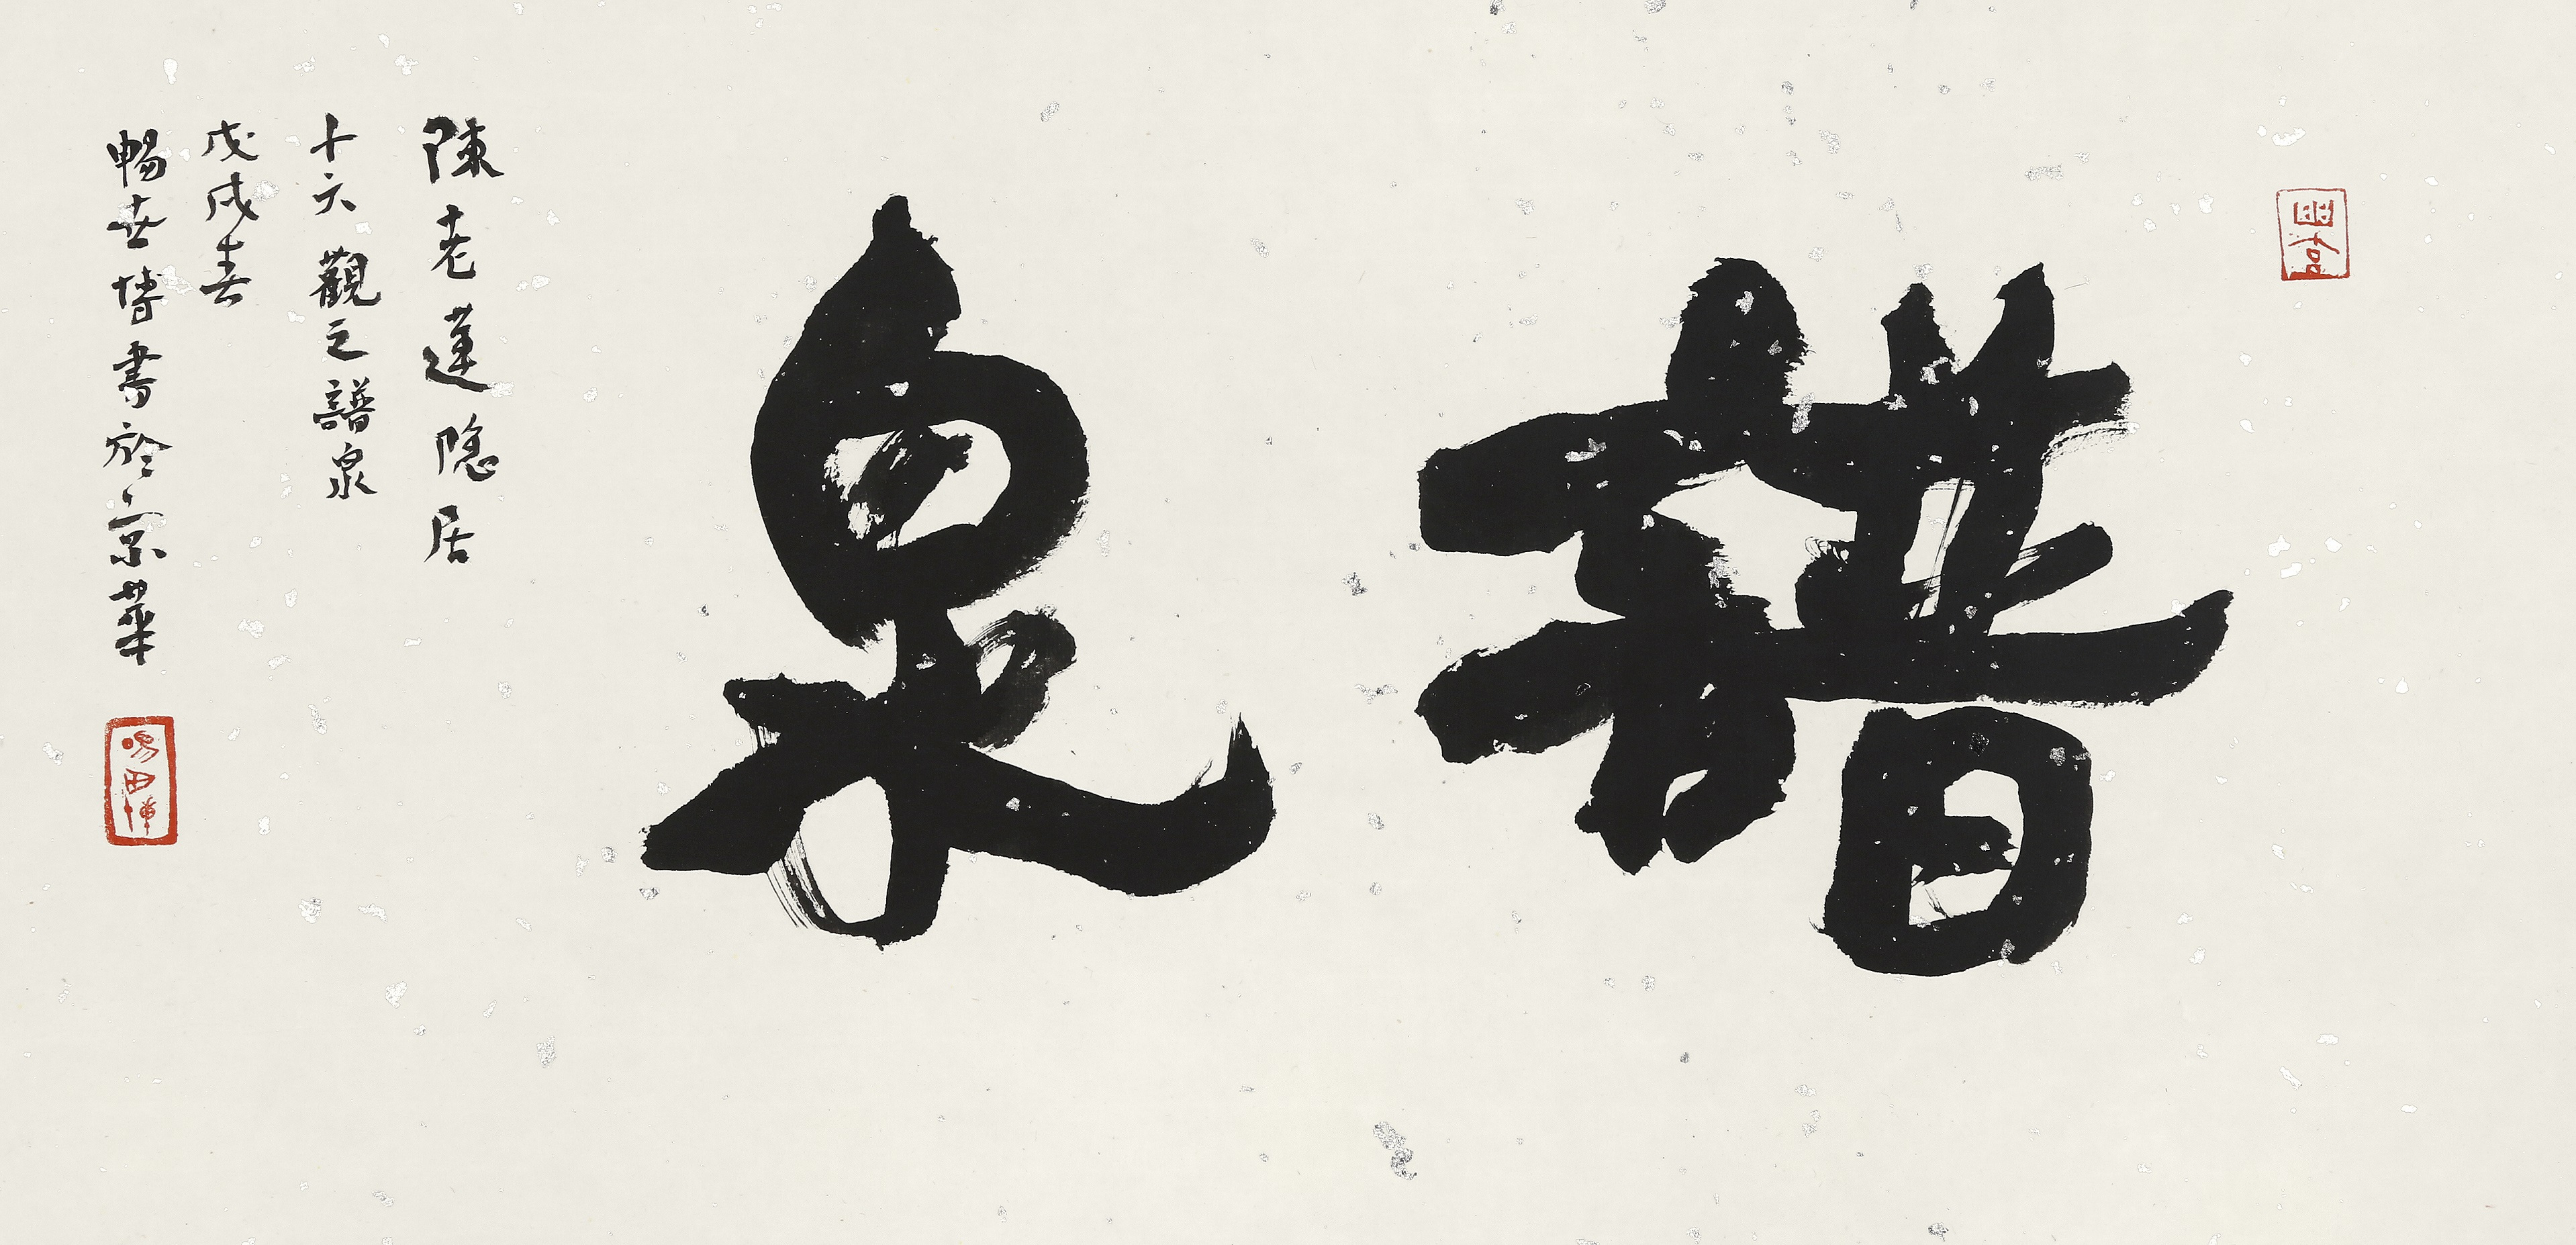 譜泉
陳老蓮隱居
十六觀之譜泉
戊戌春
暢世博書於京華